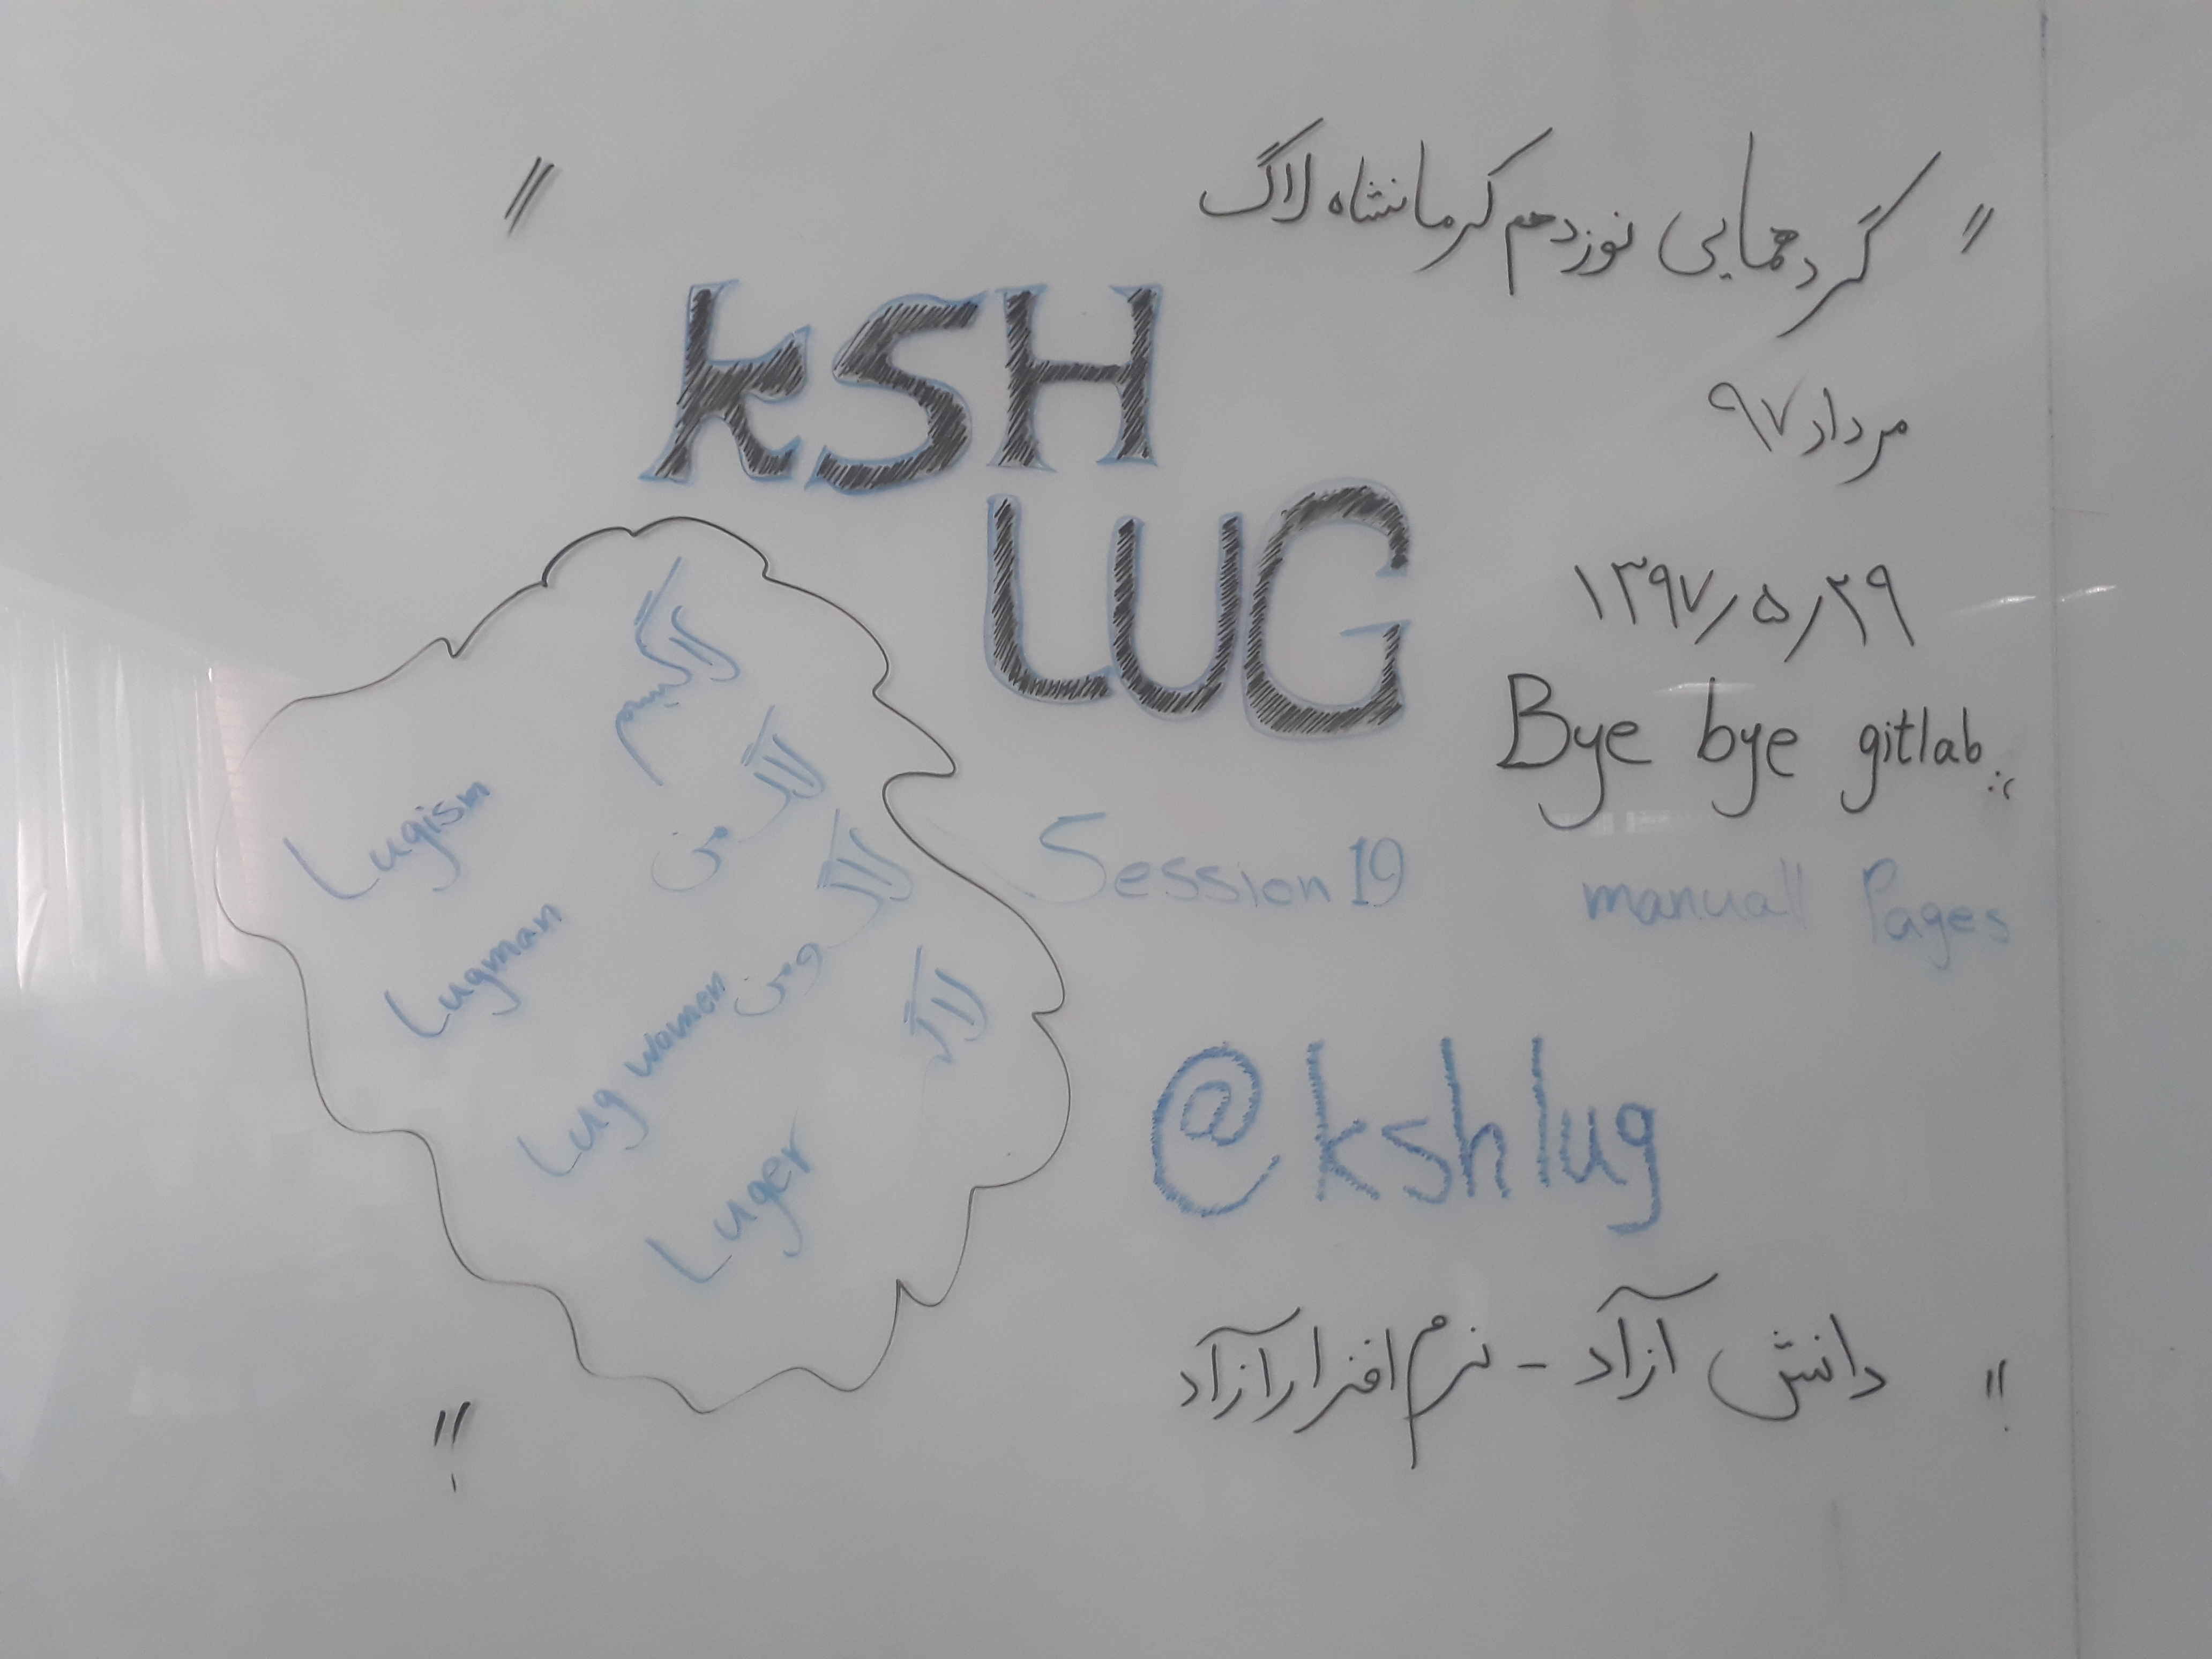 "گردهمایی نوزدهم کرمانشاه لاگ"
مرداد ۹۷
kSH
LUG
۱۳۹۷/۵/۲۹
Bye bye gitlab :(
Session 19
manuall Pages
لاگیسم
لاگ من
لاگ ومن
لاگر
Lugism
Lugman
Lug women
Luger
@kshlug
"دانش آزاد - نرم افزار آزاد"